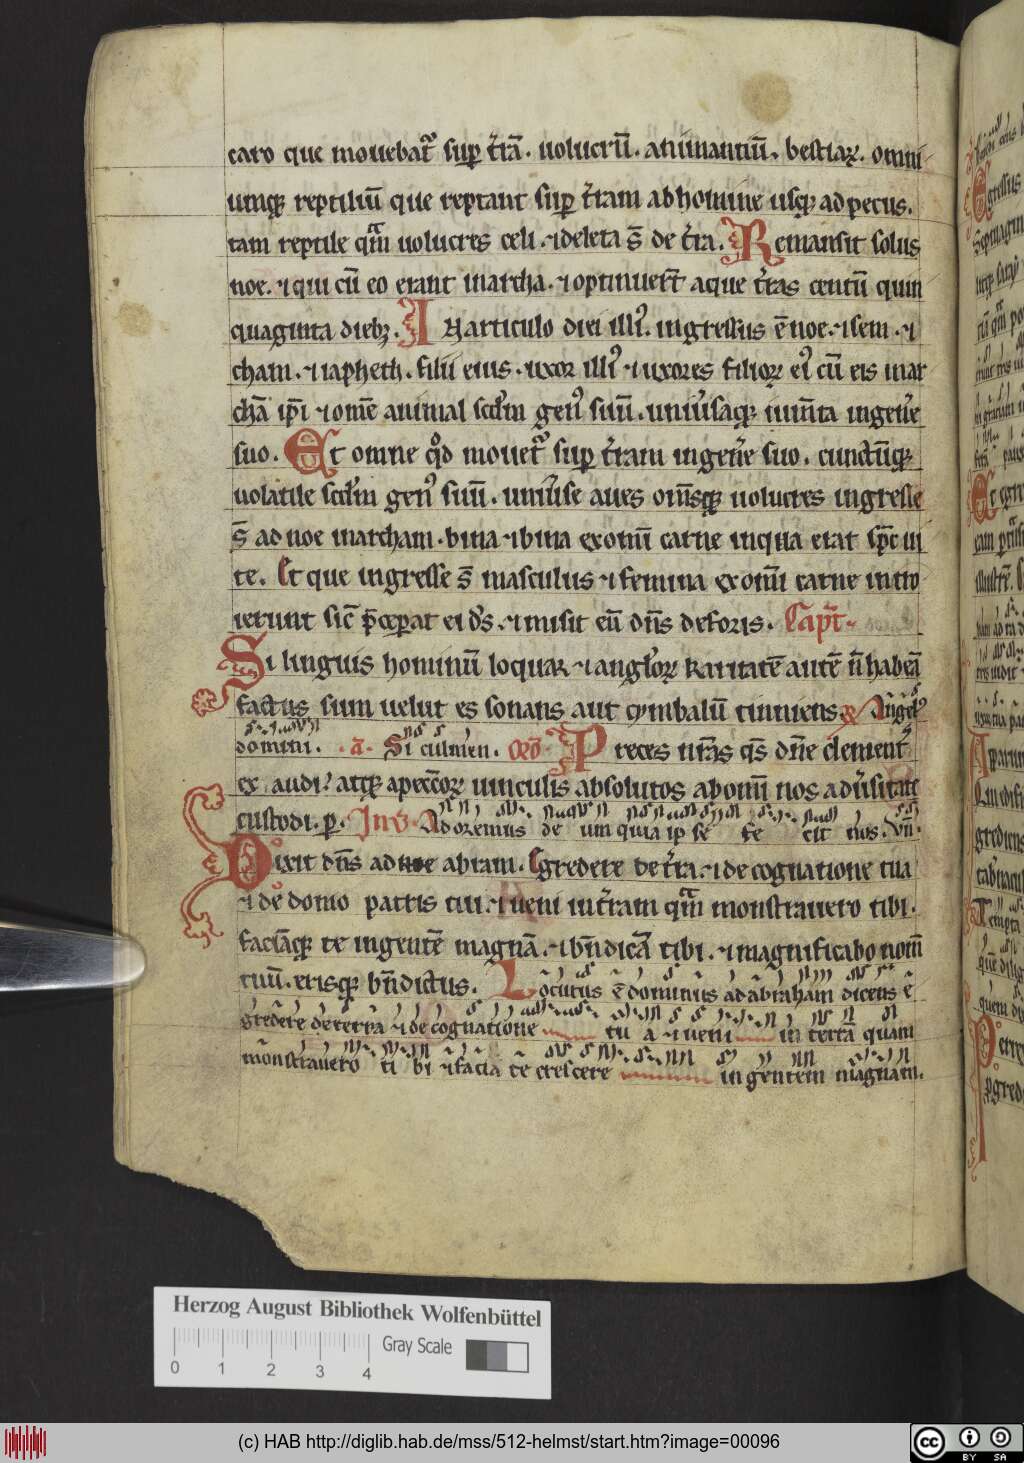 caro que mouebat᷑ sup̲ t̄ra᷑. uolucrū. animantiū. bestiaꝝ. omni
umq̨ꝫ reptiliū que reptant sup̲ t̄ram ab homine usq̨ꝫ ad pecus.
tam reptile qᷓm uolucres celi. ⁊ deleta s̄ de t̄ra. Remansit solus
noe. ⁊ qui cū eo erant in archa. ⁊ optinuer̄t aque t̄ras centū quin
quaginta diebꝫ. IN articulo diei illi᷒. ingressus ē noe. ⁊ sem. ⁊
cham. ⁊ iapheth. filii eius. uxor illi᷒ ⁊ uxores filioꝝ ei᷒ cū eis in ar
chā ip̄i ⁊ om̄e animal scd̄m gen᷒ suū. uniu᷑saq̨ꝫ ium̄ta in gen̄e
suo. Et omne qd̄ mouet᷑ sup̲ t̄ram in gen̄e suo. cunctūq̨ꝫ
uolatile scd̄m gen᷒ suū. uniu᷑se aues om̄sq̨ꝫ uolucres ingresse
s̄ ad noe in archam. bina ⁊ bina ex om̄i carne in qua erat sp̄c ui
te. Et que ingresse s̄ masculus ⁊ femina ex om̄i carne intro
ierunt sic̄ p̄cep̲at ei d̄s. ⁊ misit eū dn̄s deforis. Capt̄.
Si linguis hominū loquar ⁊ angl̄oꝝ karitatē autē n̄ habeā
factus sum uelut es sonans aut cymbalū tinniens. Angel᷒
domini. a᷑. Si culmen. Oro᷑. Preces nr̄as qs̄ dn̄e clement᷑
ex audi. atq̨ꝫ a pecc̄oꝝ uinculis absolutos ab om̄i nos adu᷑sitate
custodi. p̲. Inv᷑. Adoremus de um quia ip se fe cit nos. Vn̄.
Dixit dn̄s ad abram. Egredere de t̄ra. ⁊ de cognatione tua
⁊ de domo patris tui. ⁊ ueni in t̄ram qᷓm monstrauero tibi.
faciāq̨ꝫ te in gentē magnā. ⁊ bn̄dicā tibi. ⁊ magnificabo nom̄
tuū. erisq̨ꝫ bn̄dictus. Locutus ē dominus ad abraham dicens e
gredere de terra ⁊ de cognatione tu a ⁊ ueni in terrā quam
monstrauero ti bi ⁊ faciā te crescere in gentem magnam.
Herzog August Bibliothek Wolfenbüttel
Gray Scale
0 1 2 3 4
(c) HAB http://diglib.hab.de/mss/512-helmst/start.htm?image=00096
cc BY SA